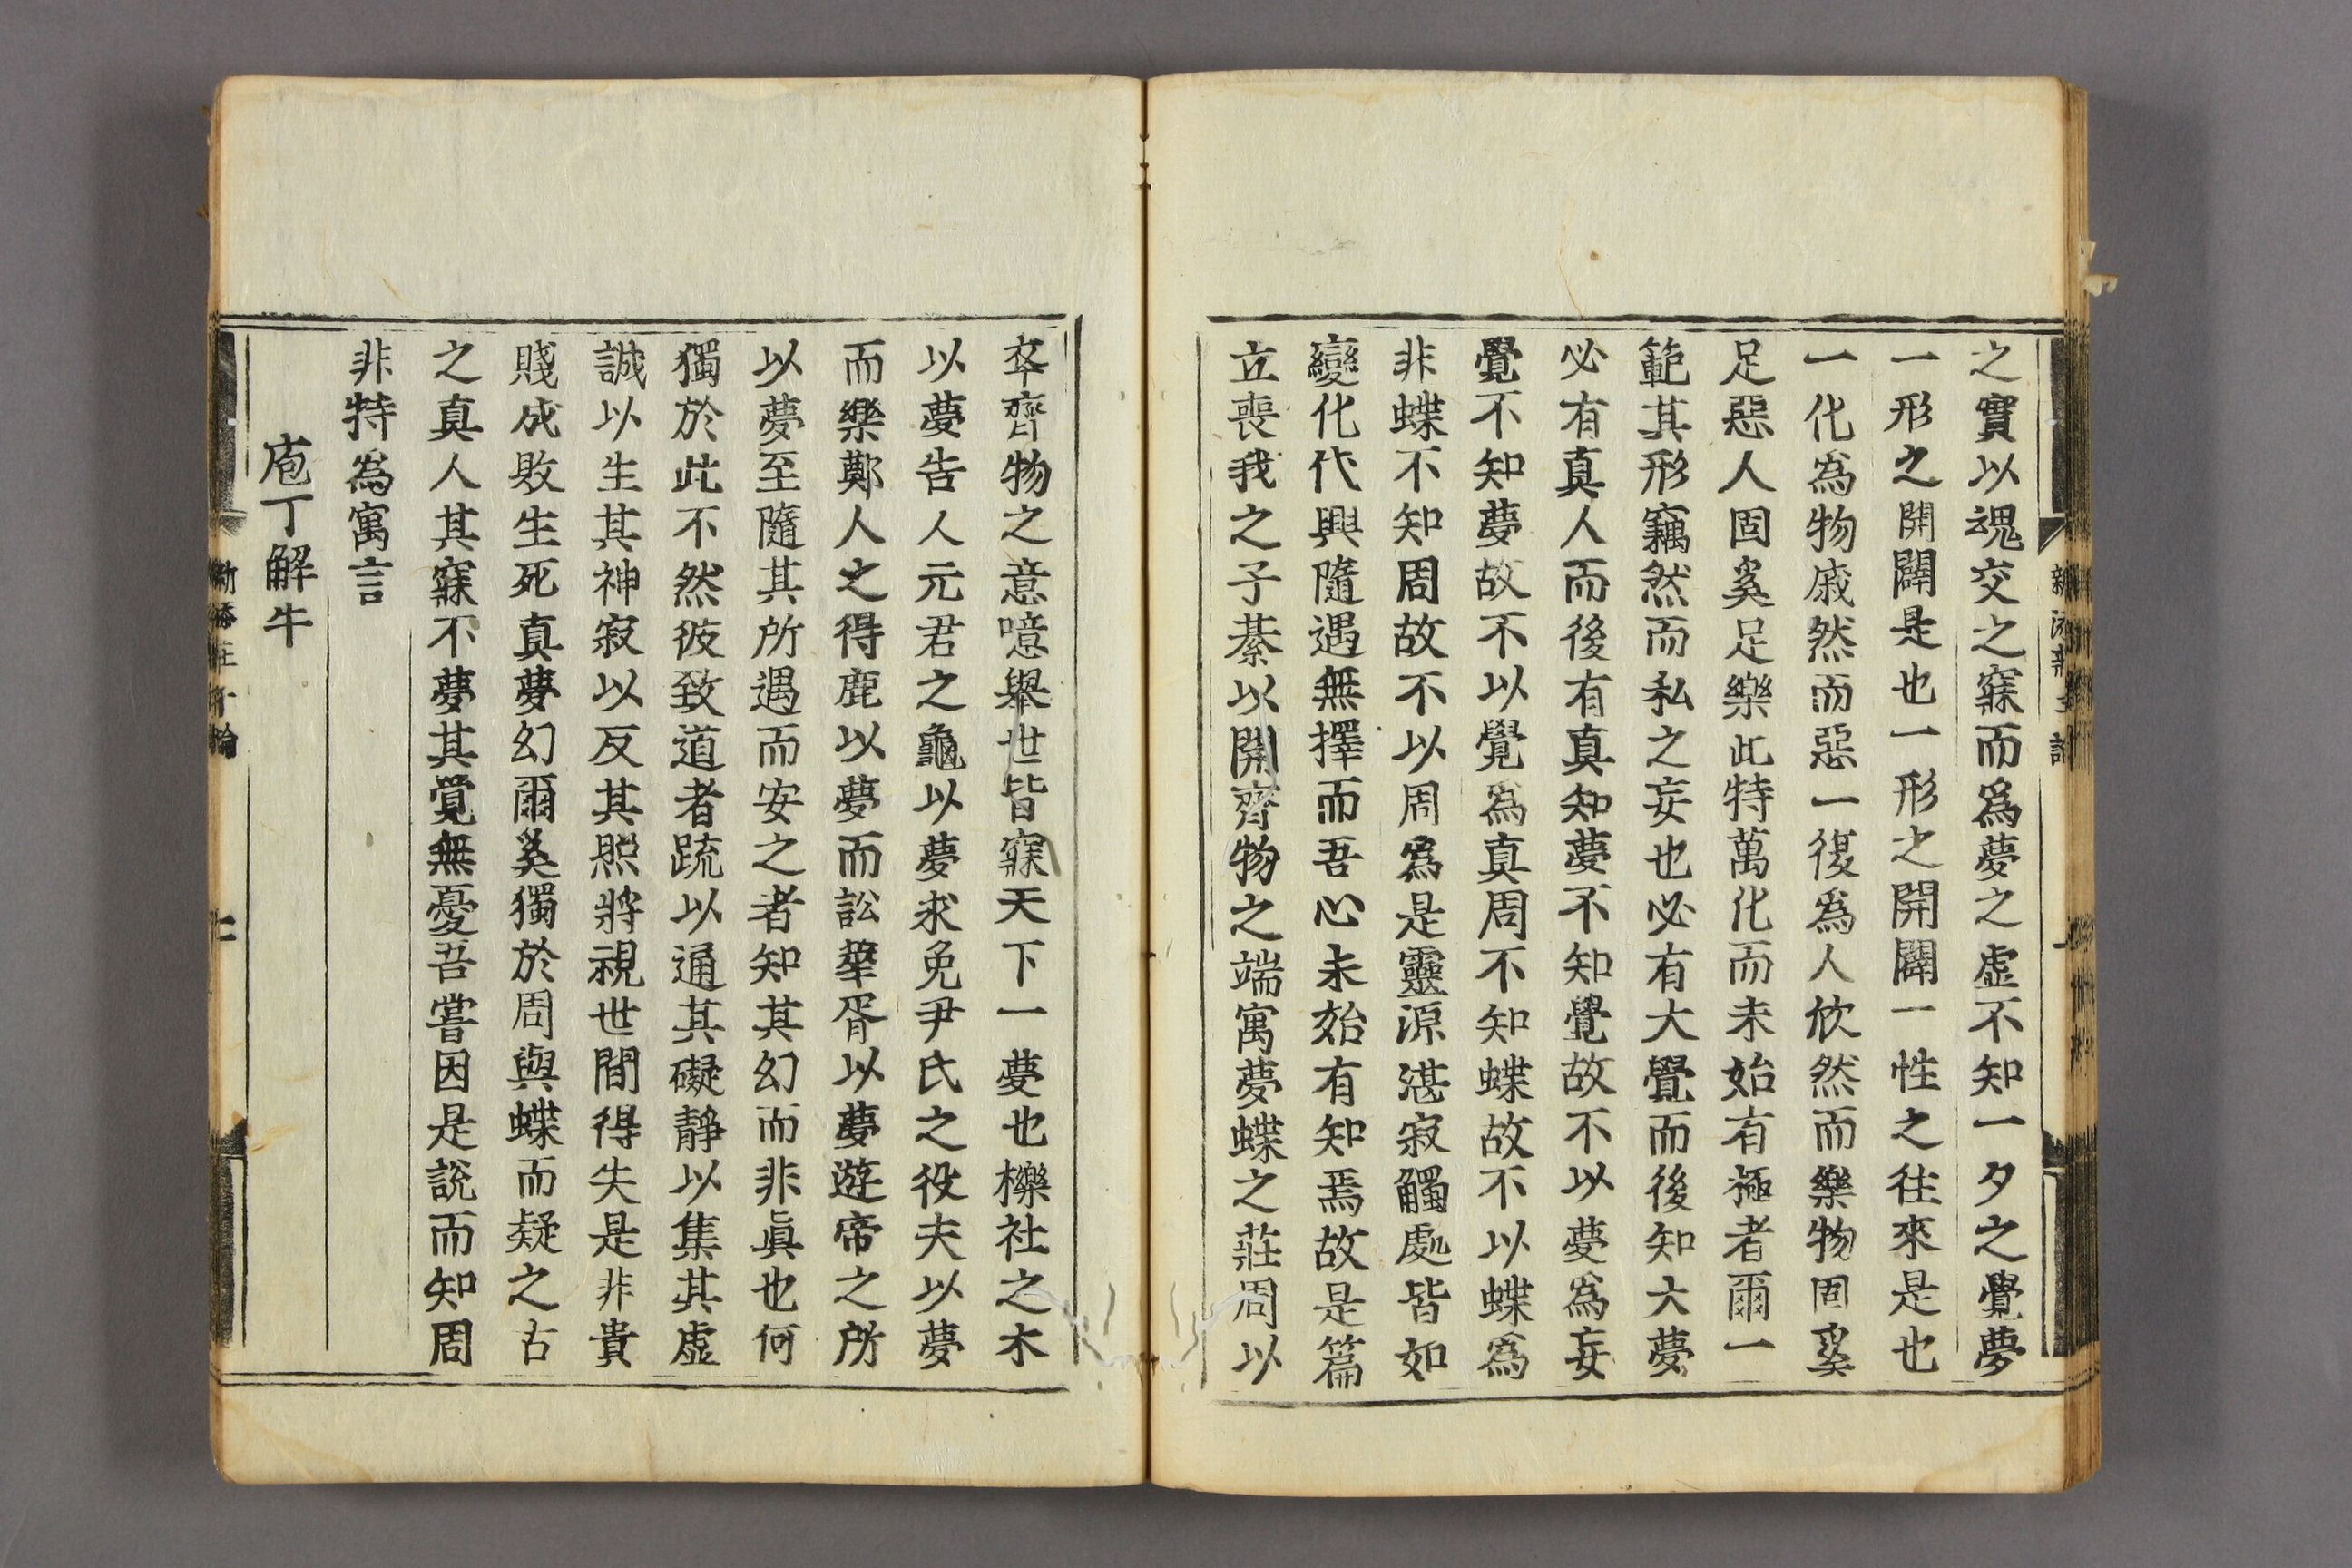 之實以魂交之寐而爲夢之虛不知一夕之覺夢
一形之開闢是也一形之開闢一性之往來是也
一化爲物戚然而惡一復爲人欣然而樂物固奚
足惡人固奚足樂此特萬化而未始有極者爾一
範其形竊然而私之妄也必有大覺而後知大夢
必有真人而後有真知夢不知覺故不以夢爲妄
覺不知夢故不以覺爲真周不知蝶故不以蝶爲
非蝶不知周故不以周爲是靈源湛寂觸處皆如
變化代興隨遇無擇而吾心未始有知焉故是篇
立喪我之子綦以開齊物之端寓夢蝶之莊周以
卒齊物之意噫舉世皆寐天下一夢也櫟社之木
以夢告人元君之龜以夢求免尹氏之役夫以夢
而樂鄭人之得鹿以夢而訟華胥以夢遊帝之所
以夢至隨其所遇而安之者知其幻而非眞也何
獨於此不然彼致道者疏以通其礙靜以集其虛
誠以生其神寂以反其照將視世間得失是非貴
賤成敗生死真夢幻爾奚獨於周與蝶而疑之古
之真人其寐不夢其覺無憂吾嘗因是說而知周
非特爲寓言
庖丁解牛